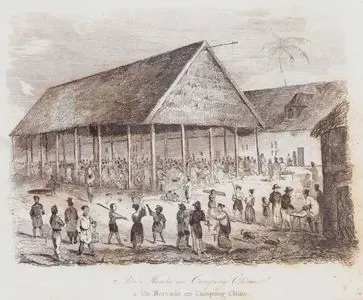 2. Un Marché au Campong Chinois.
2 Un Mercado au Campong Chino.